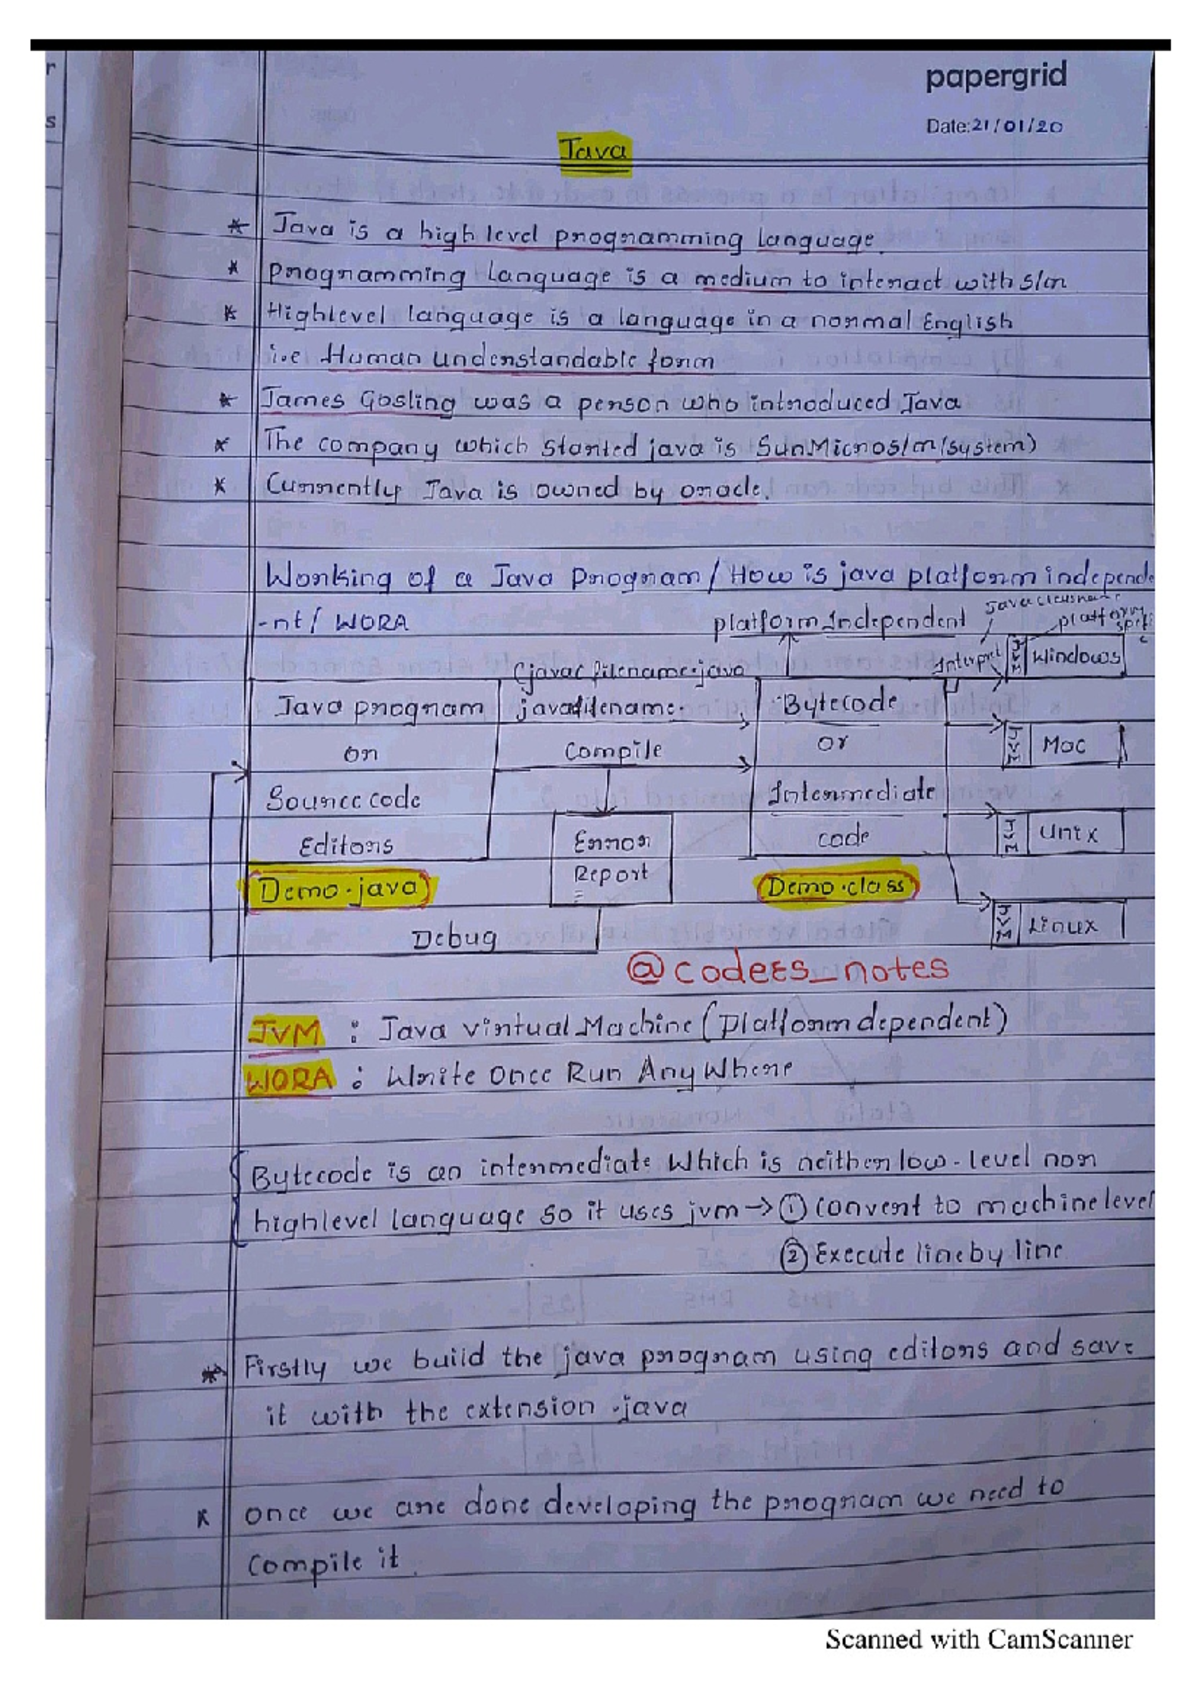 r
s
papergrid
Date: 21/01/20
Java
* Java is a high level programming language.
* programming Language is a medium to interact with s/m
* Highlevel language is a language in a normal English
i.e Human understandable form
* James Gosling was a person who introduced Java
* The company which started java is SunMicros/m(system)
* Currently Java is owned by oracle.
Working of a Java program / How is java platform independe
-nt / WORA
platform Independent
platform
(javac filename.java
Interpret
JVM Windows
Java program
Bytecode
or
Compile
or
JVM Mac
Source code
Intermediate
Editors
Error
code
JVM Unix
Demo.java
Report
Demo.class
Debug
JVM Linux
@codees_notes
JVM : Java Virtual Machine (platform dependent)
WORA : Write Once Run Any Where
Bytecode is an intermediate which is neither low-level nor
highlevel language so it uses jvm → ① convert to machine level
② Execute line by line
* Firstly we build the java program using editors and save
it with the extension .java
* once we are done developing the program we need to
compile it.
Scanned with CamScanner